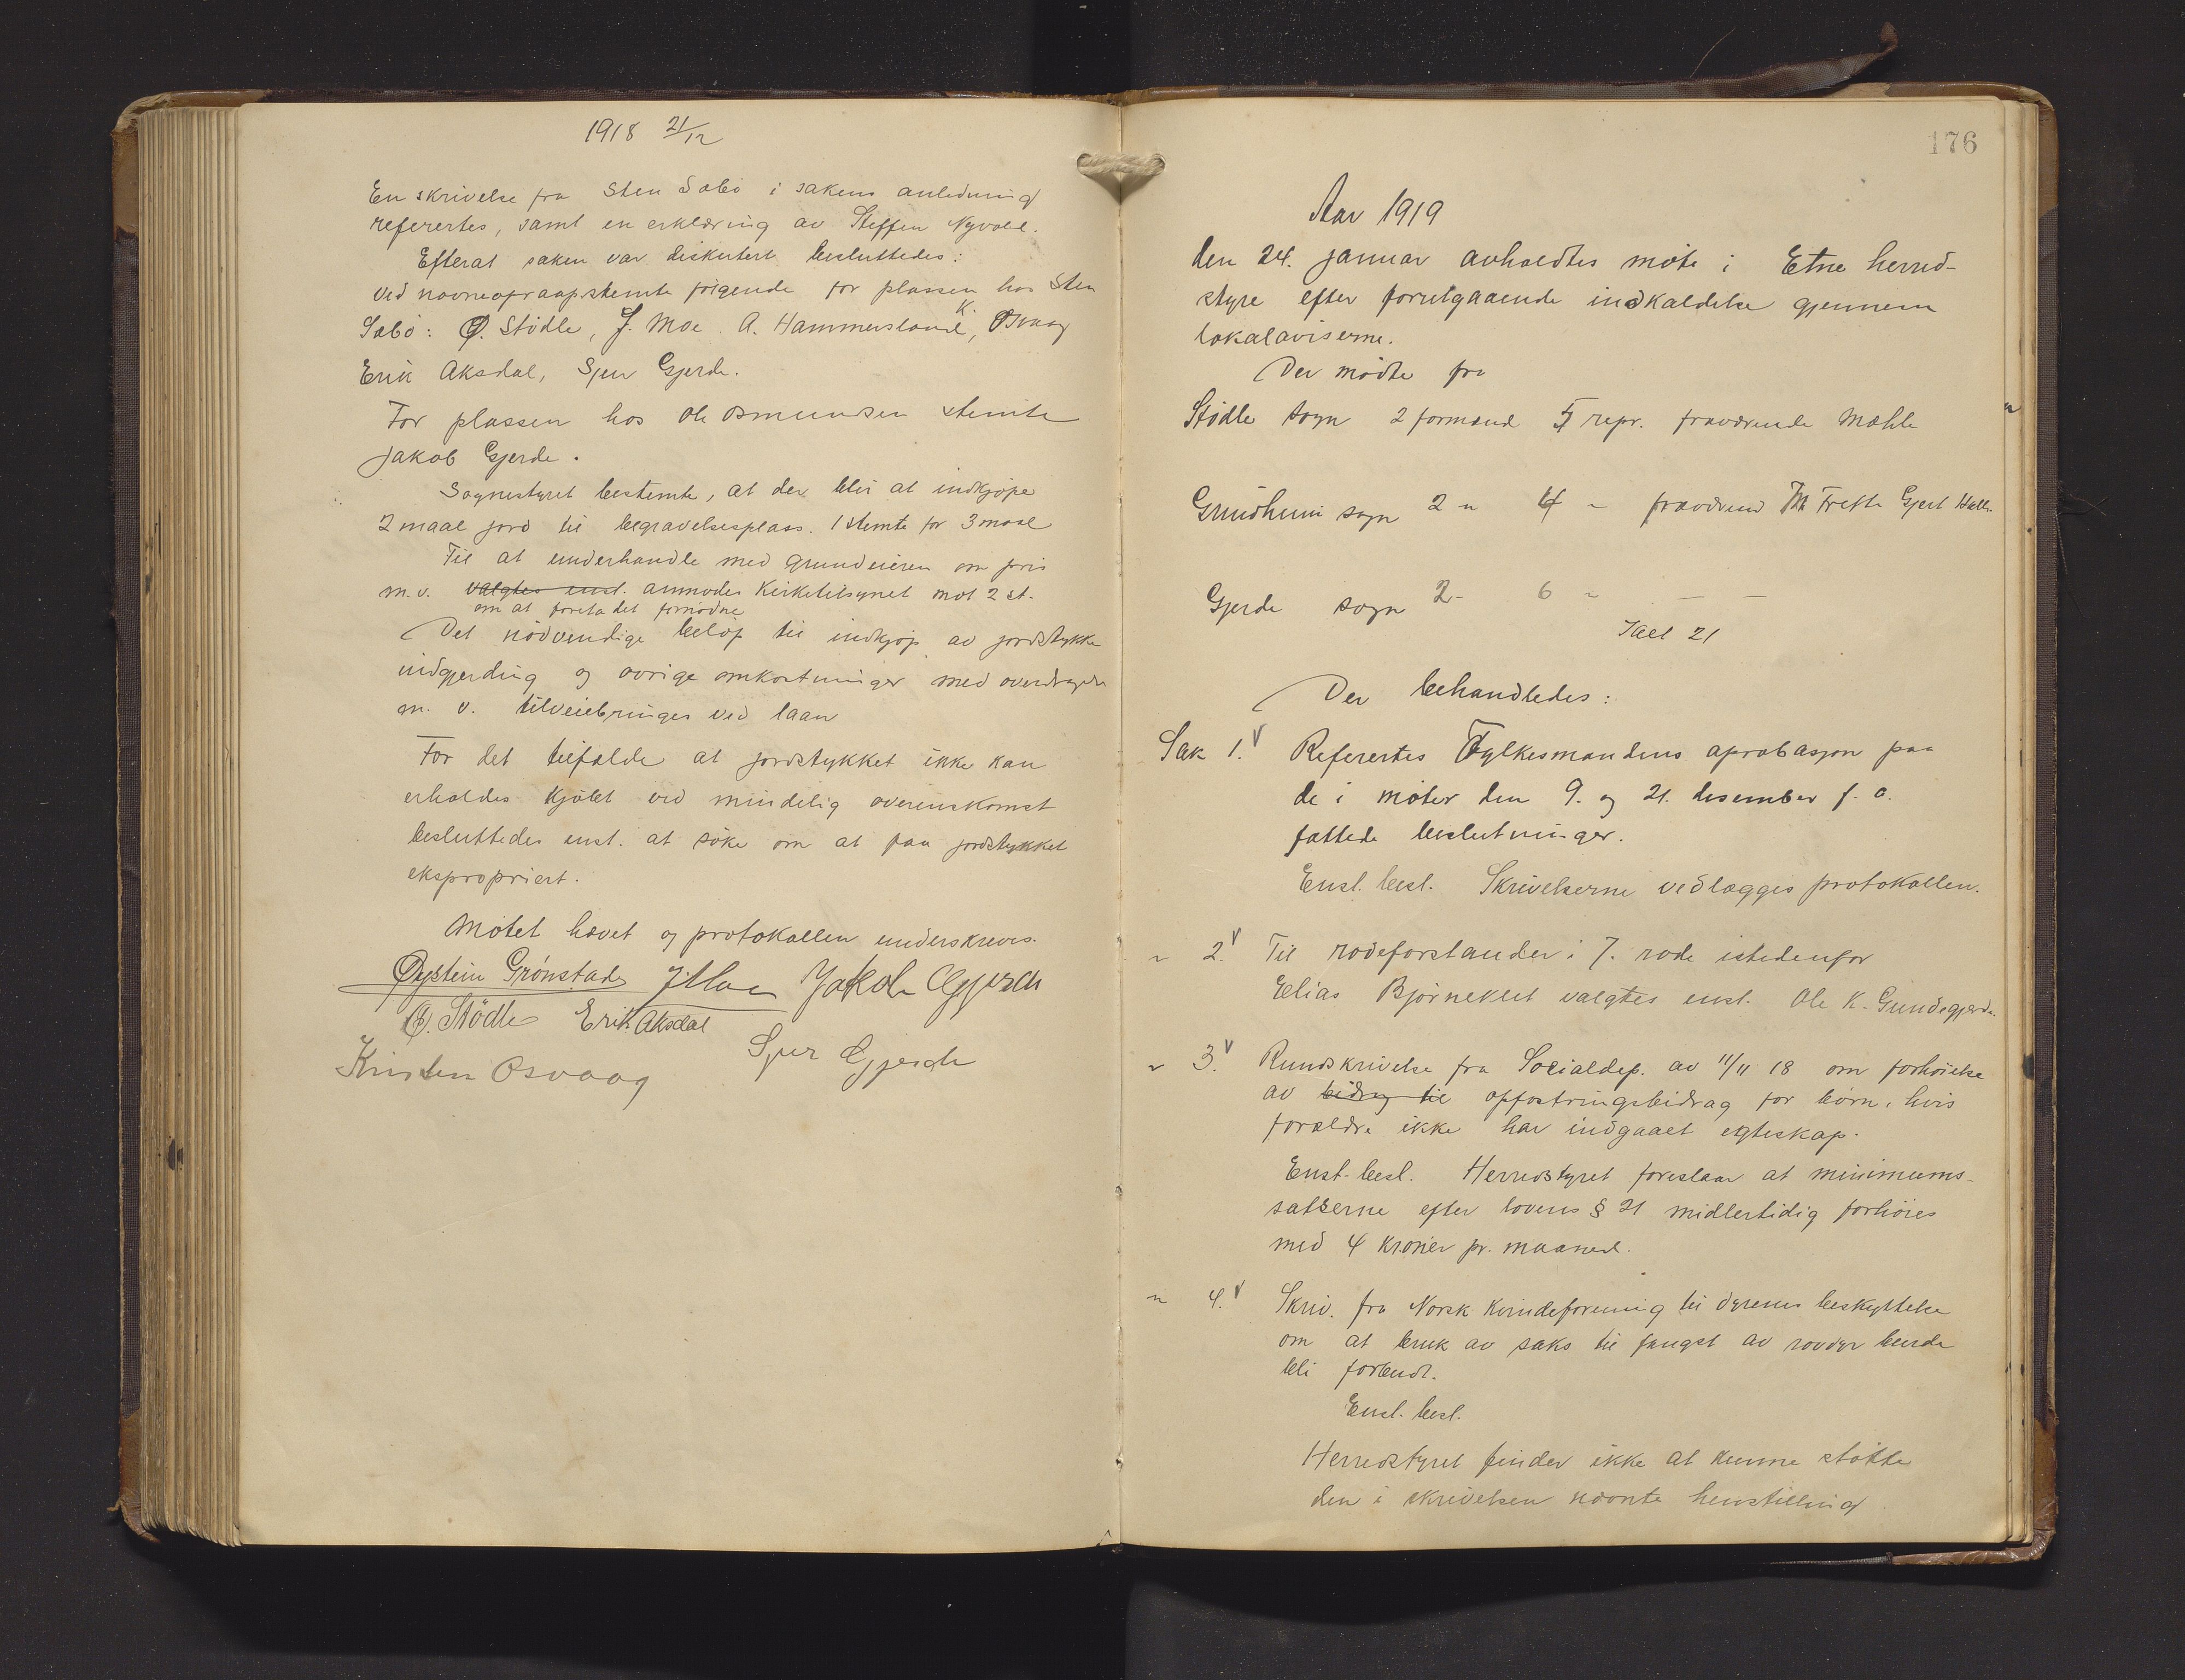 1918 21/12
En skrivelse fra Sten Sæbö i sakens anledning
referertes, samt en erklæring av Steffen Nyvold.
Efterat saken var diskutert besluttedes:
Ved navneopraap stemte fölgende for plassen hos Sten
Sæbö: Ö. Stödle, J. Moe. A. Hammersland, K. Osvaag
Erik Aksdal, Sjur Gjerde.
For plassen hos Ole Osmundsen stemte
Jakob Gjerde.
Sognestyret bestemte, at der blir at indkjöpe
2 maal jord til begravelsesplass. 1 stemte for 3 maal
Til at underhandle med grundeieren om pris
m.v. valgtes enst. anmodes Kirketilsynet mot 2 st.
om at foreta det fornödne
Det nödvendige belöp til indkjöp av jordstykke
indgjerding og övrige omkostninger med overdragelse
m. v. tilveiebringes ved laan
For det tilfælde at jordstykket ikke kan
erholdes kjöbt ved mindelig overenskomst
besluttedes enst. at söke om at faa jordstykket
ekspropriert.
Mötet hævet og protokollen underskreves.
Øystein Grönstad J. Moe Jakob Gjerde
Ö. Stödle Erik Aksdal
Sjur Gjerde
Kristen Osvaag
176
Aar 1919
den 24. januar avholdtes möte i Etne herred-
styre efter forutgaaende indkaldelse gjennem
lokalaviserne.
Der mödte fra
Stödle sogn 2 formænd 5 repr. fraværende Mæhle
Grindheim sogn 2 " 4 " fraværend Th Trette Gjert Hall.
Gjerde sogn 2 - 6 " — —
Ialt 21
Der behandledes:
Sak 1. V Referertes Fylkesmandens aprobasjon paa
de i möter den 9. og 21. desember f. a.
fattede beslutninger.
Enst. besl. Skrivelserne vedlægges protokollen.
" 2. V Til rodeforstander i 7. rode istedenfor
Elias Björneklet valgtes enst. Ole K. Gundegjerde.
" 3. V Rundskrivelse fra Socialdep. av 11/11 18 om forhöielse
av bidrag til opfostringsbidrag for börn, hvis
forældre ikke har indgaaet egteskap.
Enst. besl. Herredstyret foreslaar at minimums-
satserne efter lovens § 21 midlertidig forhöies
med 4 kroner pr. maaned.
" 4. V Skriv. fra Norsk Kvindeforening til dyrenes beskyttelse
om at bruk av saks til fangst av rovdyr burde
bli forbudt.
Enst. besl.
Herredstyret finder ikke at kunne stötte
den i skrivelsen nævnte henstilling.